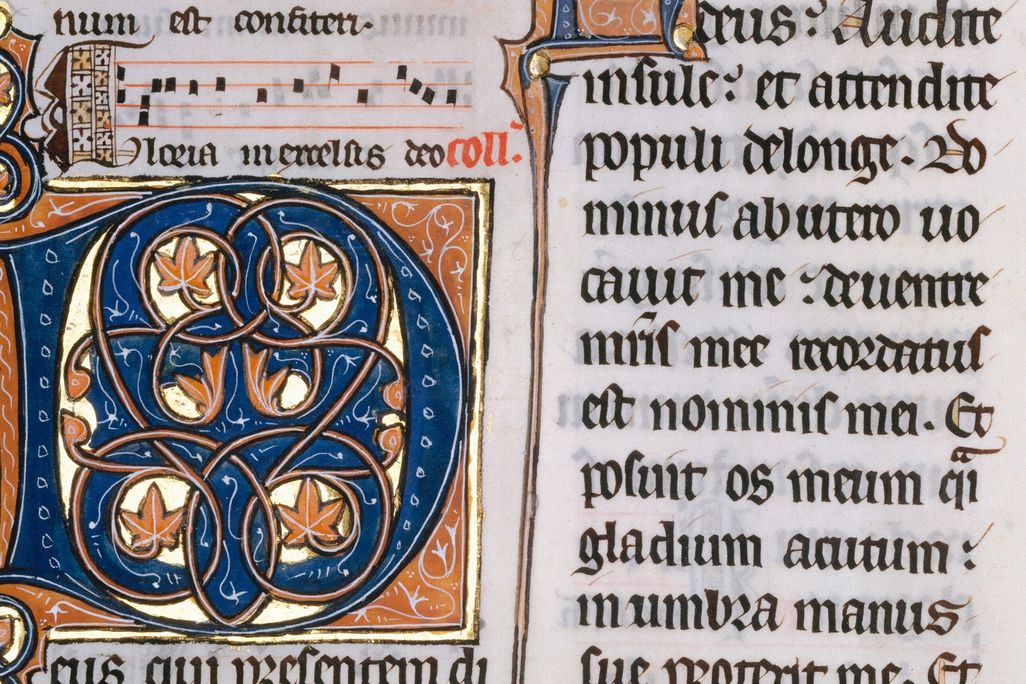 num est confiteri.
Gloria in excelsis deo coll'.
Deus qui presentem di
deus: Audite
insule: et attendite
populi delonge. Do
minus ab utero uo
cauit me: de uentre
mr̄is mee recordatus
est nominis mei. Et
posuit os meum qᵃi
gladium acutum:
in umbra manus
sue protexit me. Et